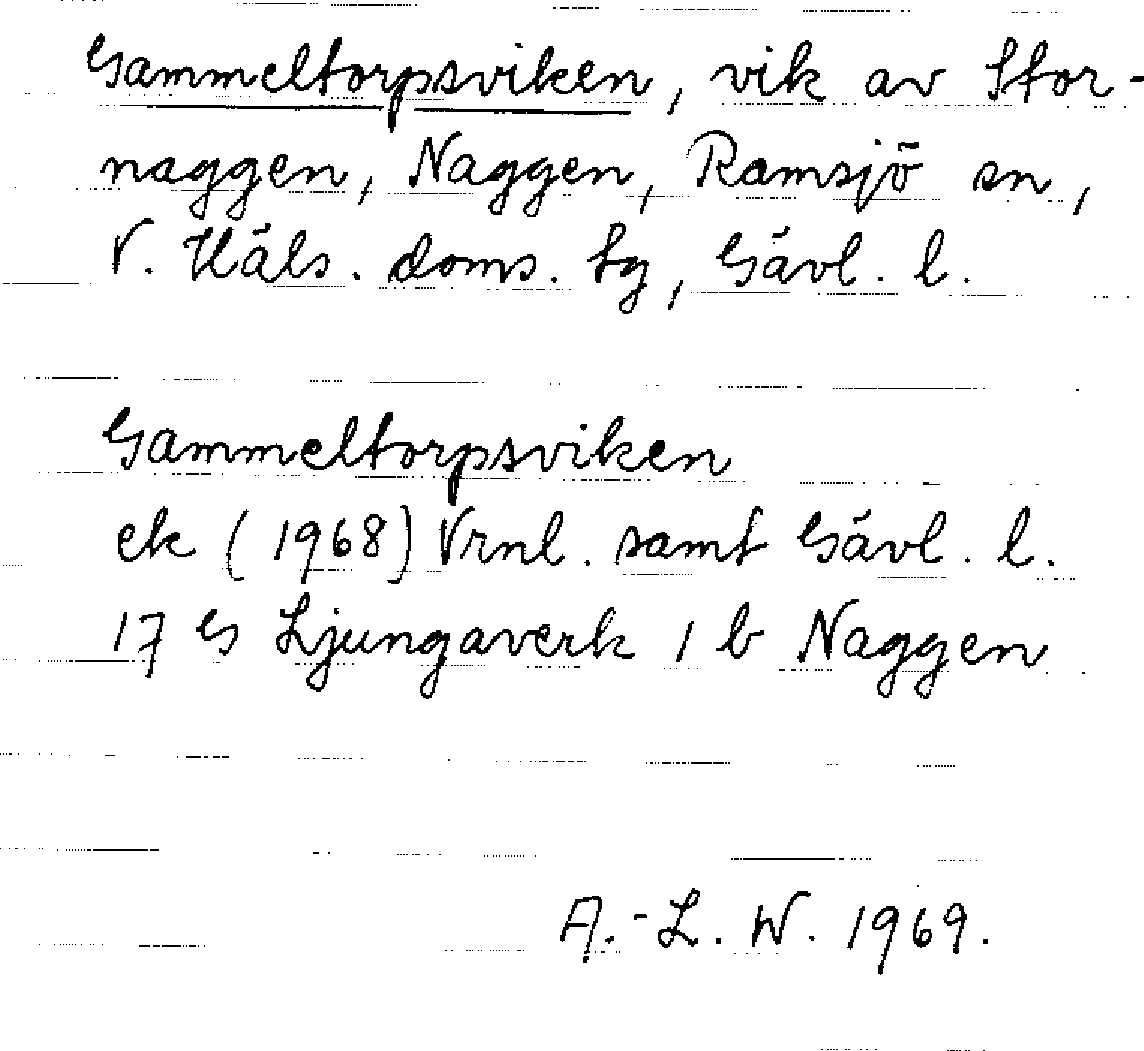 Gammeltorpsviken, vik av Stor-
naggen, Naggen, Ramsjö sn,
V. Häls. doms. tg, Gävl. l.
Gammeltorpsviken
ek (1968) Vrnl. samt Gävl. l.
17 G Ljungaverk 1 b Naggen
A.-L. W. 1969.